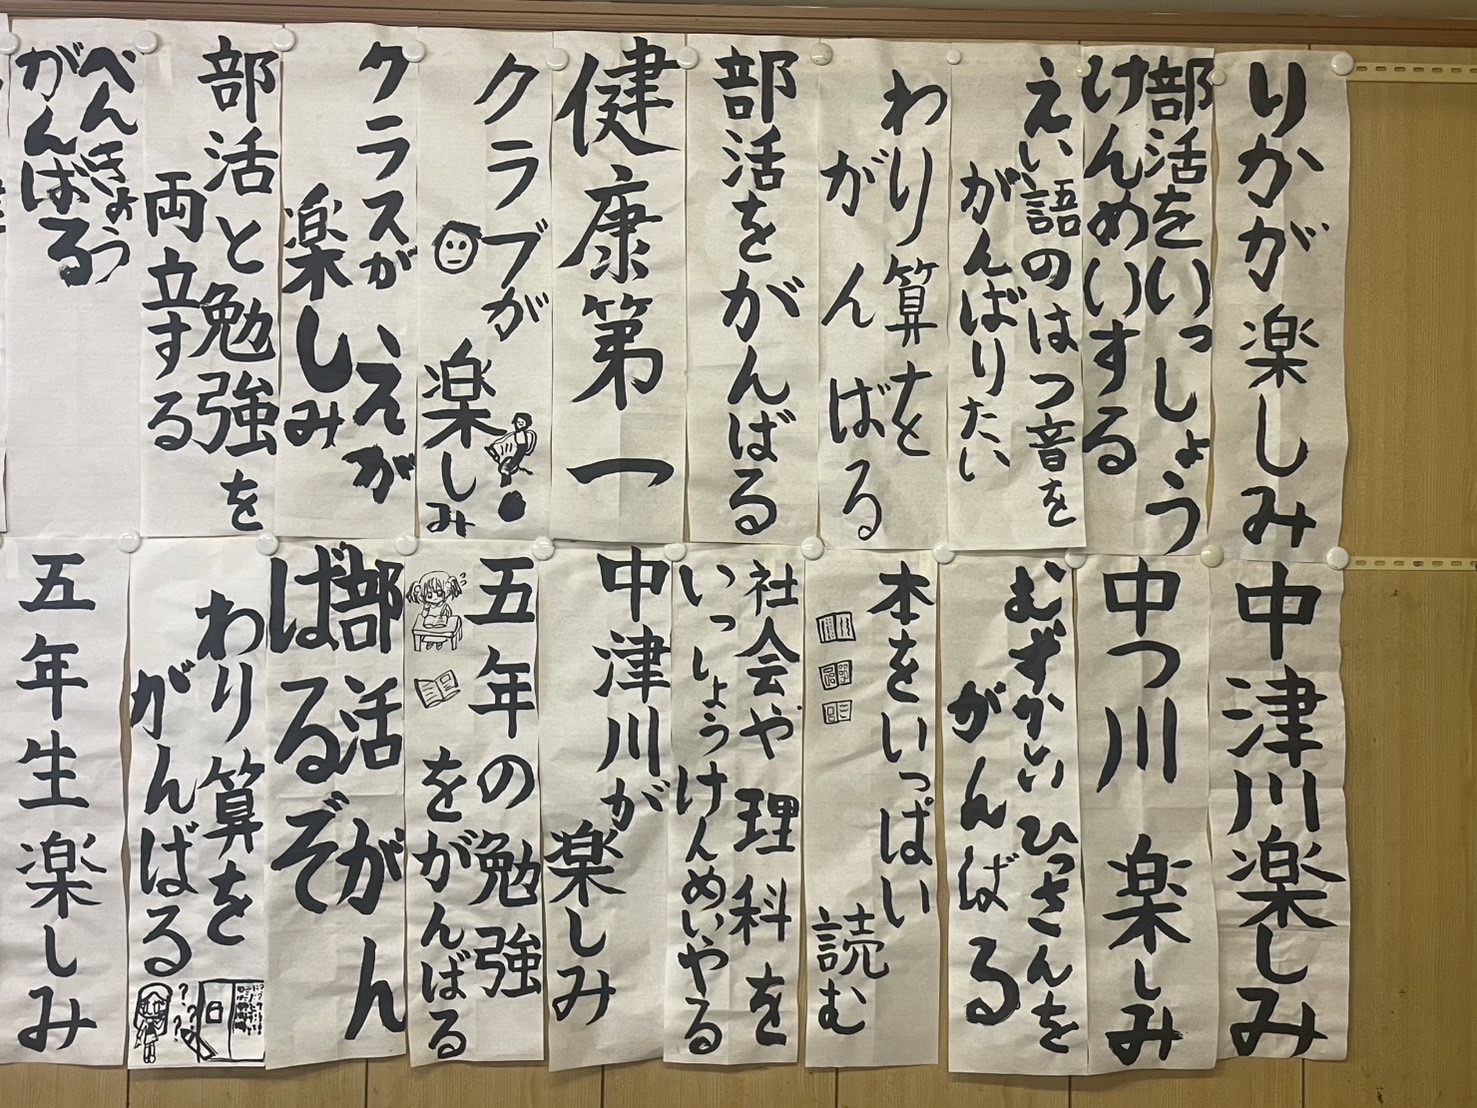 りかが楽しみ
部活をいっしょう
けんめいする
えい語のはつ音を
がんばりたい
わり算を
がんばる
部活をがんばる
健康第一
クラブが
楽しみ
クラスがえが
楽しみ
部活と勉強を
両立する
べんきょう
がんばる
中津川楽しみ
中つ川楽しみ
むずかしいひっさんを
がんばる
本をいっぱい
読む
社会や理科を
いっしょうけんめいやる
中津川が
楽しみ
五年の勉強
をがんばる
部活がん
ばるぞ
わり算を
がんばる
？？？
五年生楽しみ